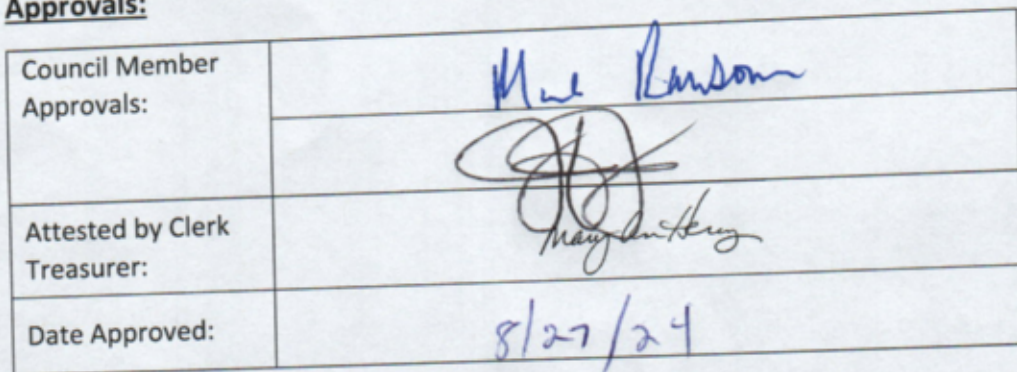 Approvals:
Council Member
Approvals:
Ransom
Attested by Clerk
Treasurer:
Mary Ann Henry
Date Approved:
8/27/24